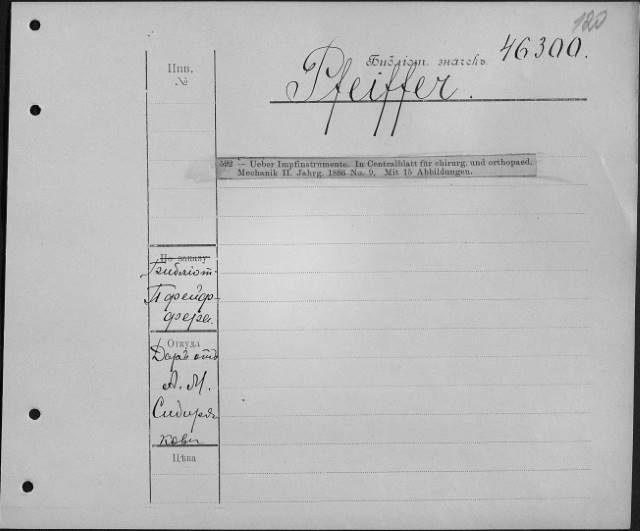 120
Инв.
№
Библіот. значекъ 46300.
Pfeiffer.
592 — Ueber Impfinstrumente. In Centralblatt für chirurg. und orthopaed.
Mechanik II. Jahrg. 1886 No. 9. Mit 15 Abbildungen.
По заказу
Библіот.
Пфейф-
фера.
Откуда
Даръ отъ
А. М.
Сибиря-
кова
Цѣна